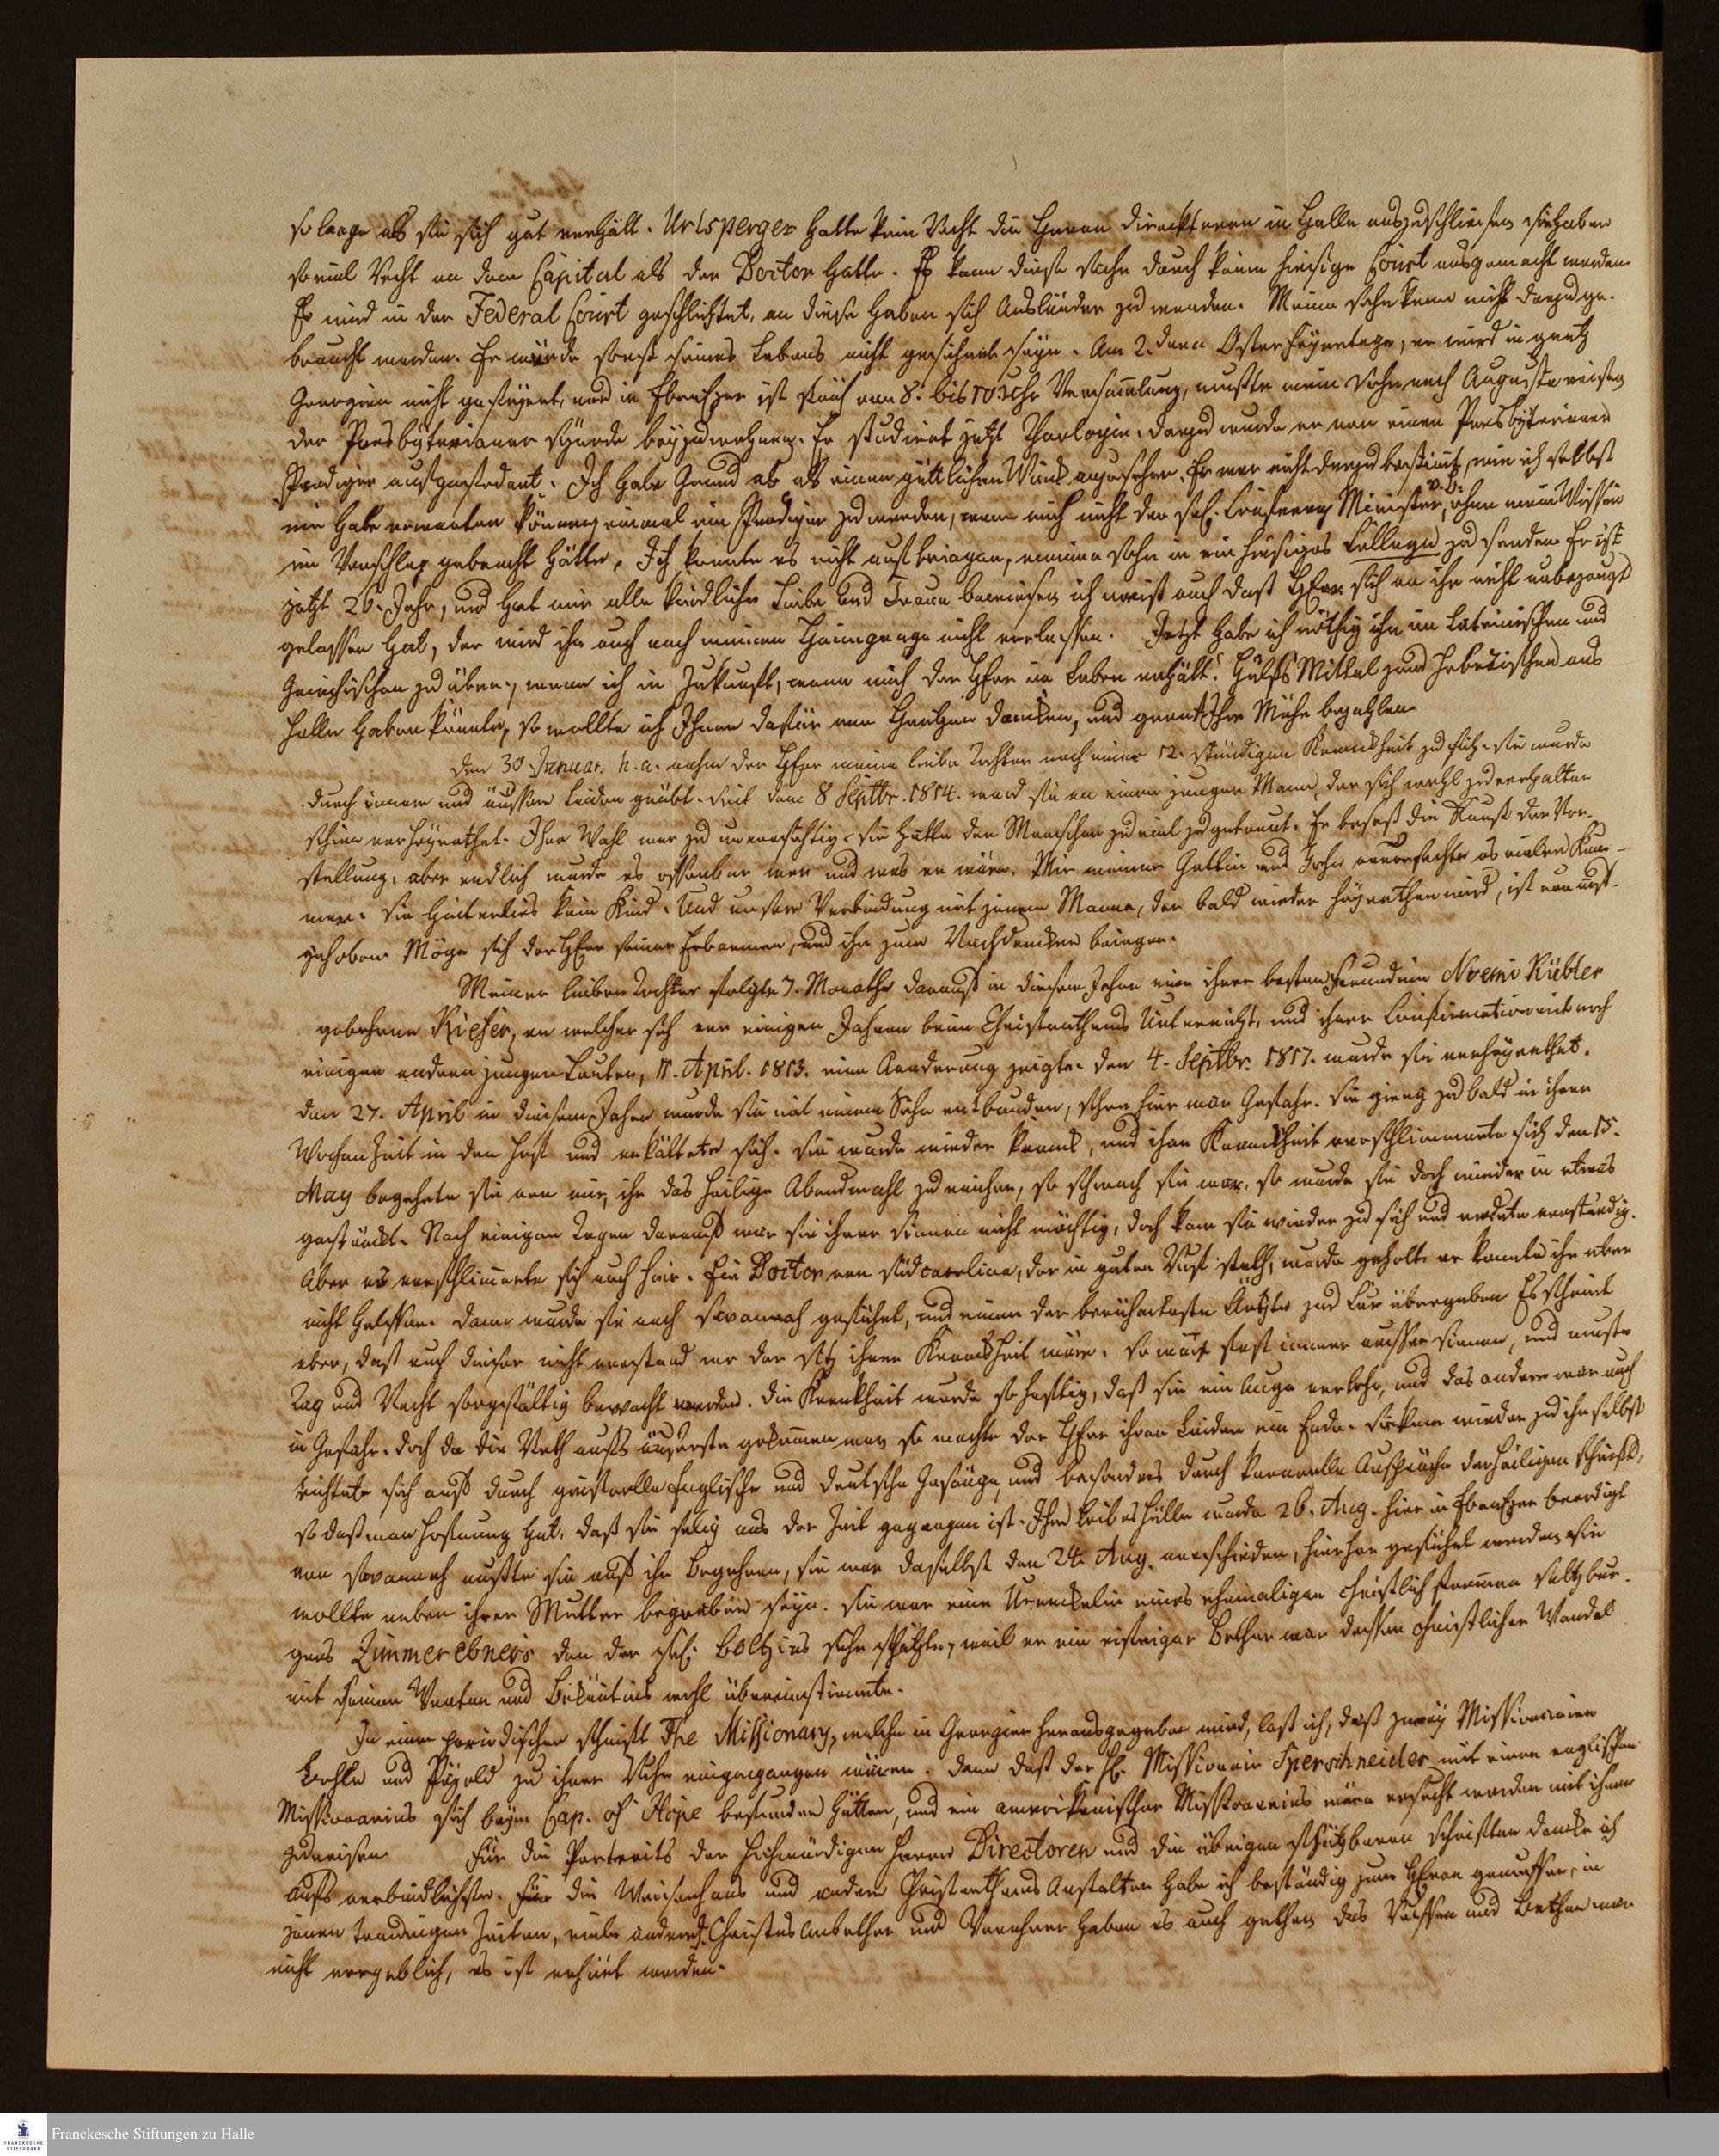 so lange als sie sich gut verhält. Urlsperger hatte kein Recht die Herren Direcktoren in Halle auszuschliesen sie haben
so viel Recht an dem Capital als der Doctor hatte. Es kann diese Sache durch keine hiesige Court ausgemacht werden.
Es wird in der Federal Court geschlichtet, an diese haben sich Ausländer zu wenden. Meine Sache kann nicht dazu ge-
braucht werden. Er würde sonst seines Lebens nicht gesichert seyn. Am 2. dem Osterfeyertage, er wird in gantz
Georgien nicht gefeyert, und in Ebenezer ist früh von 8. bis 10. Uhr Versamlung, mußte mein Sohn nach Augusta reisen
der Presbyterianer Synode beyzuwohnen. Er studiret jetzt Theologie. dazu wurde er von einem Presbyterianer
Prediger aufgefodert. Ich habe Grund es als einen göttlichen Wink anzusehen. Er war nicht dazu bestimt, wie ich selbst
nie habe erwarten können einmal ein Prediger zu werden, wenn mich nicht der sel. Minister, ohne mein Wissen
in Vorschlag gebracht hätte. Ich konnte es nicht aufbringen, meinen Sohn in ein hiesiges Collegn zu senden. Er ist
jetzt 26. Jahr, und hat mir alle kindliche Liebe und Treue bewiesen ich weiß auch daß HErr sich an ihm nicht unbezeugt
gelassen hat, der wird ihn auch nach meinem Heimgange nicht verlassen. Jetzt habe ich nöthig ihn im Lateinischen und
Griechischen zu üben, wenn ich in Zukunft, wenn mich der HErr im Leben erhält, Hülfs Mittel zum Hebräischen aus
Halle haben könnte, so wollte ich Ihnen dafür von Hertzen dancken, und gerne Ihre Mühe bezahlen.
Den 30 Januar. h. a. nahm der HErr meine liebe Tochter nach einer 12. stündigen Kranckheit zu sich. sie wurde
durch innere und äussere Leiden geübt. Seit dem 8 Septbr. 1814. ward sie an einen jungen Mann, der sich wohl zu verhalten
schien verheyrathet. Ihre Wahl war zu unvorsichtig. sie hatte den Menschen zu viel zugetraut. Er besaß die Kunst der Ver-
stellung, aber endlich wurde es offenbar wer und was er wäre. Mir meiner Gattin und Sohn verursachte es vielen Kum-
mer. Sie hinterlies kein Kind. Und unsere Verbindung mit jenem Manne, der bald wieder heyrathen wird, ist nun auf-
gehoben. Möge sich der HErr seiner erbarmen, und ihn zum Nachdencken bringen.
Meiner lieben Tochter folgte 7. Monathe darauf in diesem Jahre eine ihrer besten Freundinn Noemi Kübler
gebohrne Kiefer, an welcher sich vor einigen Jahren beim Christenthums Unterricht, und ihrer Confirmation mit noch
einigen andern jungen Leuten, 11. April. 1813. eine Aenderung zeigte. den 4. Septbr. 1817. wurde sie verheyrathet.
den 27. April in diesem Jahre wurde sie mit einem Sohn entbunden, schon hier war Gefahr. Sie gieng zu bald in ihrer
Wochenzeit in den Hof und erkältete sich. Sie wurde wieder kranck, und ihre Kranckheit verschlimmerte sich den 15.
May begehrte sie von mir, ihr das heilige Abendmahl zu reichen, so schwach sie war. so wurde sie doch wieder in etwas
gestärckt. Nach einigen Tagen darauf war sie ihrer Sinnen nicht mächtig, doch kam sie wieder zu sich und redete verständig.
Aber es verschlimerte sich auch hier. Ein Doctor von Südcarolina, der in guten Ruf steth, wurde geholt, er konnte ihr aber
nicht helffen. Dann wurde sie nach Savannah geführt, und einem der berühmtesten Ärtzte zur Cur übergeben. Es scheint
aber, daß auch dieser nicht verstand wo der Sitz ihrer Kranckheit wäre. Sie war fast immer ausser Sinnen, und muste
Tag und Nacht sorgfältig bewacht werden. Die Kranckheit wurde so heftig, daß sie ein Auge verlohr, und das andere war auch
in Gefahr. Doch da die Noth aufs äusserste gekommen war so machte der HErr ihrem Leiden ein Ende. Sie kam wieder zu ihr selbst
richtete sich auf durch geistvolle Englische und deutsche Gesänge, und besonders durch Aussprüche der heiligen Schrift,
so daß man Hofnung hat, daß sie selig aus der Zeit gegangen ist. Ihre Leibes hülle wurde 26. Aug. hier in Ebenezer beerdigt
von Savannah mußte sie auf ihr Begehren, sie war daselbst den 24. Aug. verschieden, hierher geführt werden. sie
wollte neben ihrer Mutter begraben seyn. Sie war eine Urenckelin eines ehemaligen christlich frommen Saltzbur-
gers Zimmerebners den der sel. Boltzius sehr schätzte, weil er ein eifriger Bether war dessen christlicher Wandel
mit seinen Worten und Bekäntnis wohl übereinstimmte.
In einer periodischen Schrift The Missionary, welche in Georgien herausgegeben wird, laß ich, daß zwey Missionarien
Kohlhoff und Päzold zu ihrer Ruhe eingegangen wären. Dann daß der H. Missionair Sperschneider mit einem englischen
Missionarius sich beym Cap. of Hope befunden hätten, und ein americkanischer Missionarius wäre ersucht worden mit ihnen
zu reisen. Für die Portraits der Hochwürdigen Herrn Directoren und die übrigen schätzbaren Schriften dancke ich
aufs verbindlichste. Für die Waisenhaus und andere Christenthums Anstalten habe ich beständig zum HErrn geruffen, in
jenen traurigen Zeiten, viele andere Christus Anbether und Verehrer haben es auch gethan das Ruffen und Bethen war
nicht vergeblich, es ist erhört worden.
Franckesche Stiftungen zu Halle
FRANCKESCHE STIFTUNGEN